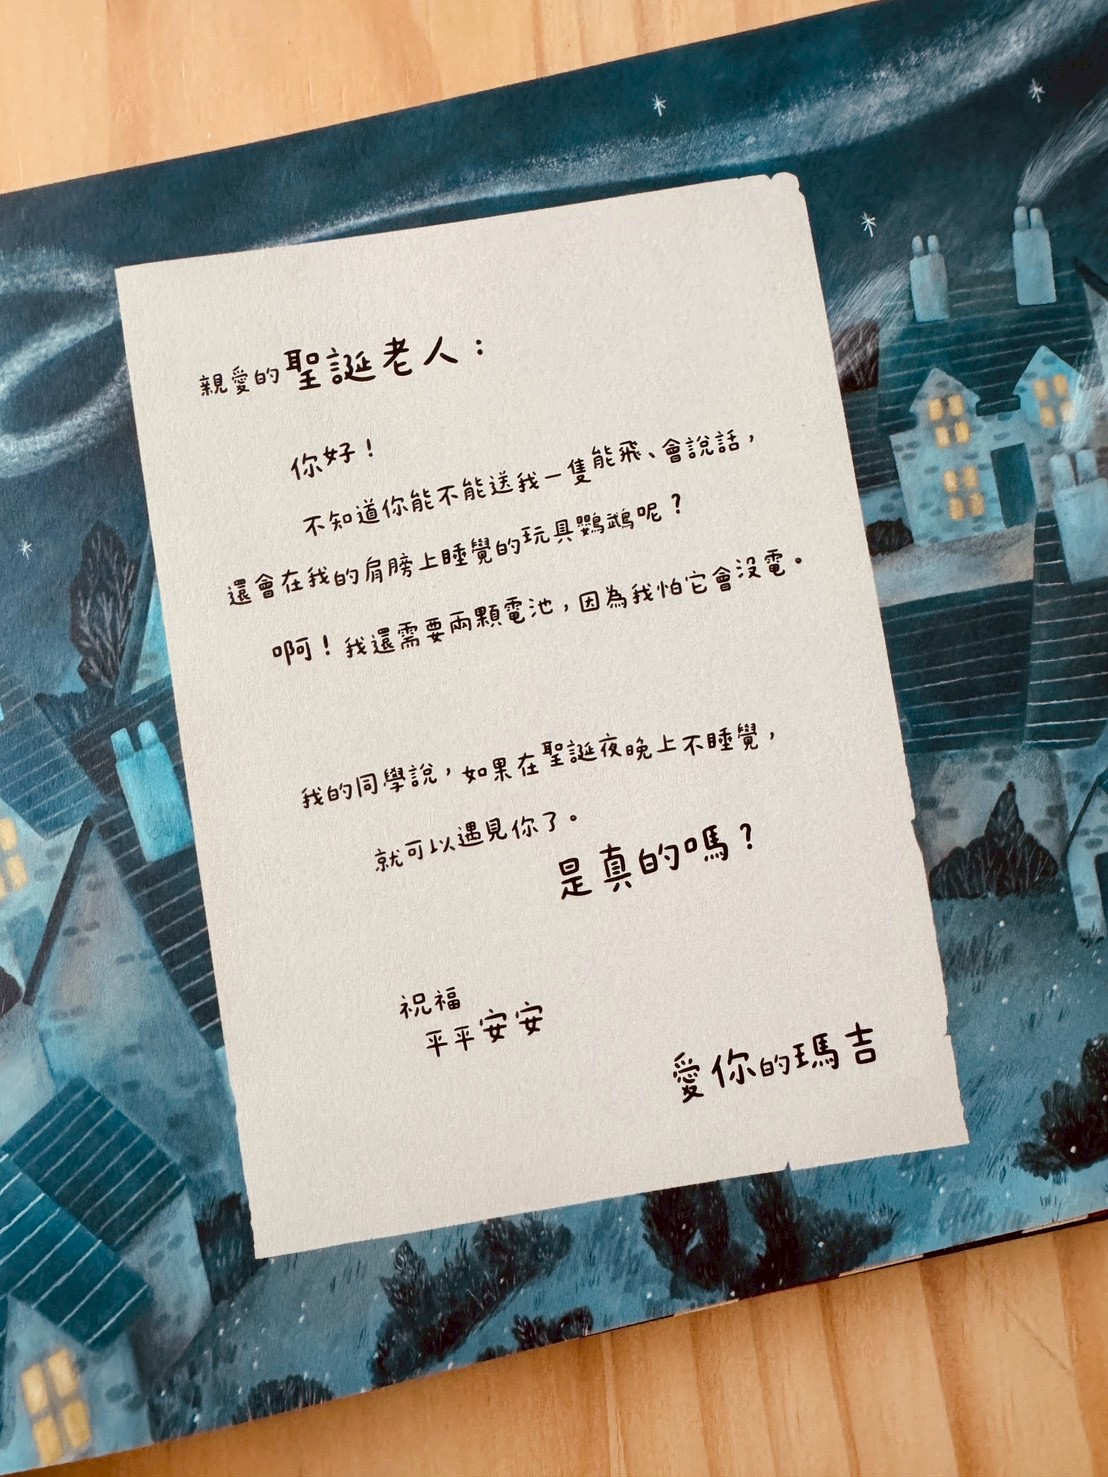 親愛的聖誕老人：
你好！
不知道你能不能送我一隻能飛、會說話，
還會在我的肩膀上睡覺的玩具鸚鵡呢？
啊！我還需要兩顆電池，因為我怕它會沒電。
我的同學說，如果在聖誕夜晚上不睡覺，
就可以遇見你了。
是真的嗎？
祝福
平平安安
愛你的瑪吉